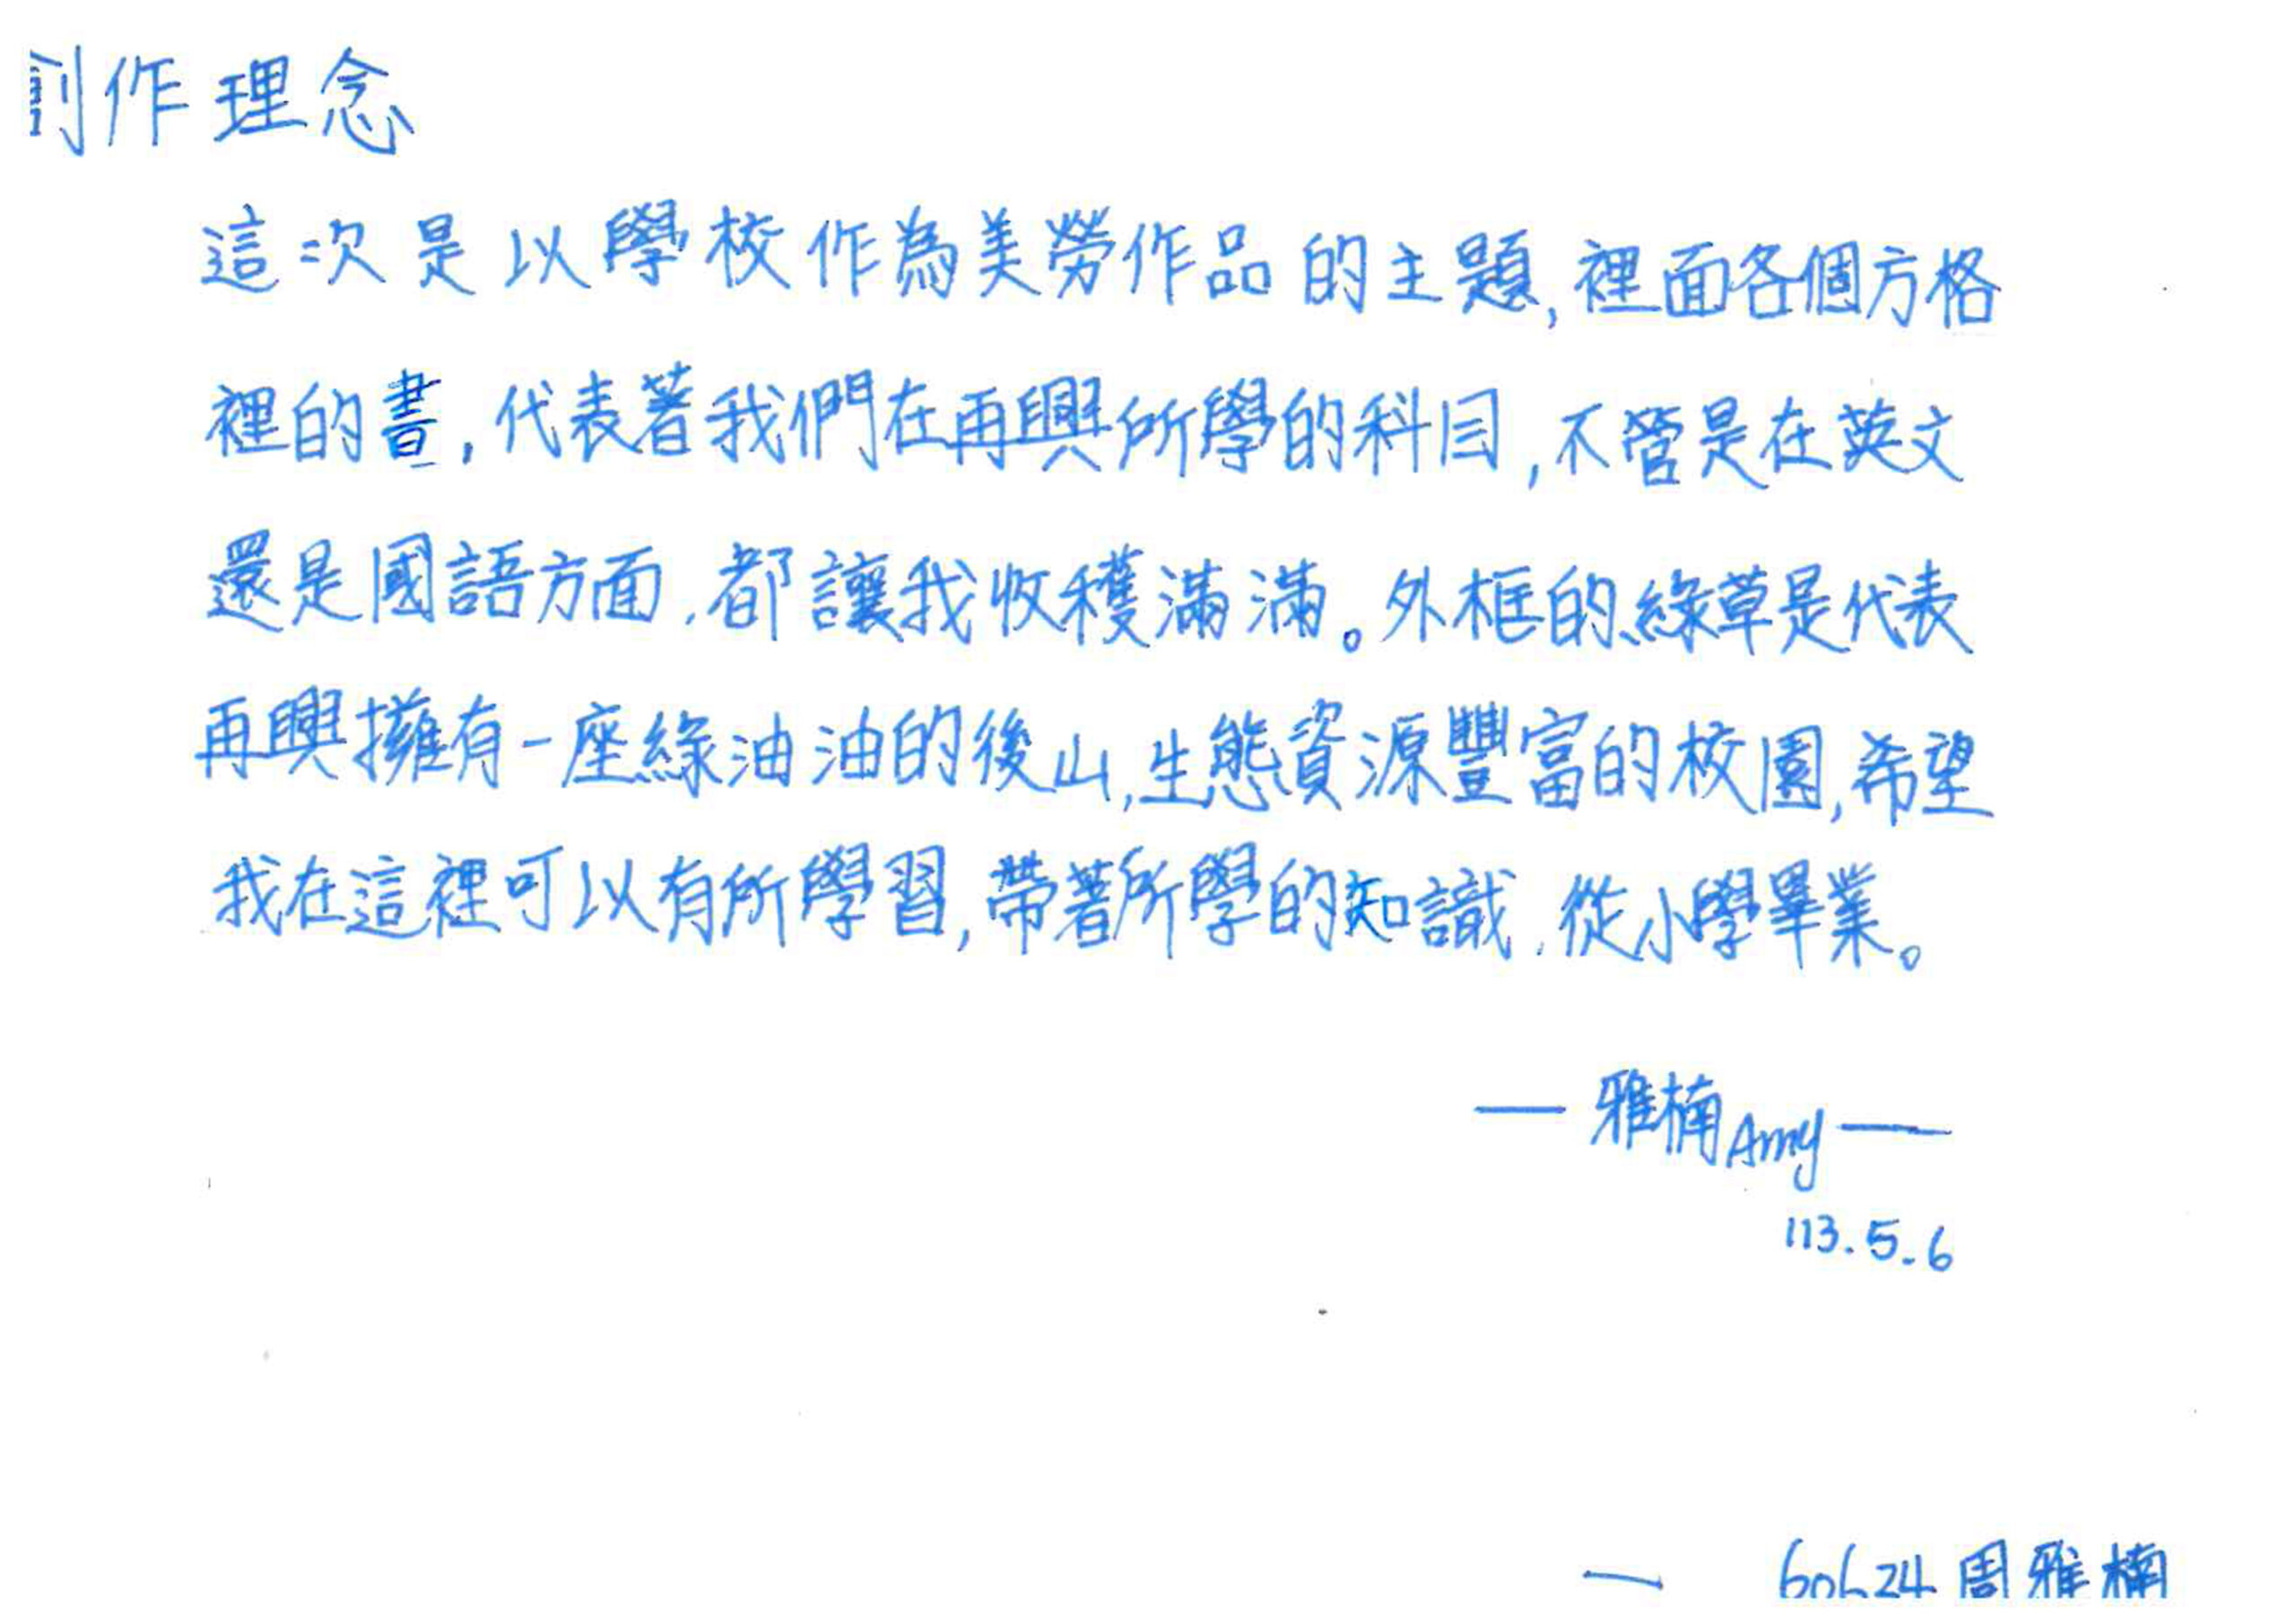 創作理念
這次是以學校作為美勞作品的主題,裡面各個方格
裡的書,代表著我們在再興所學的科目,不管是在英文
還是國語方面,都讓我收穫滿滿。外框的綠草是代表
再興擁有一座綠油油的後山,生態資源豐富的校園,希望
我在這裡可以有所學習,帶著所學的知識,從小學畢業。
— 雅楠Amy —
113.5.6
— 周雅楠